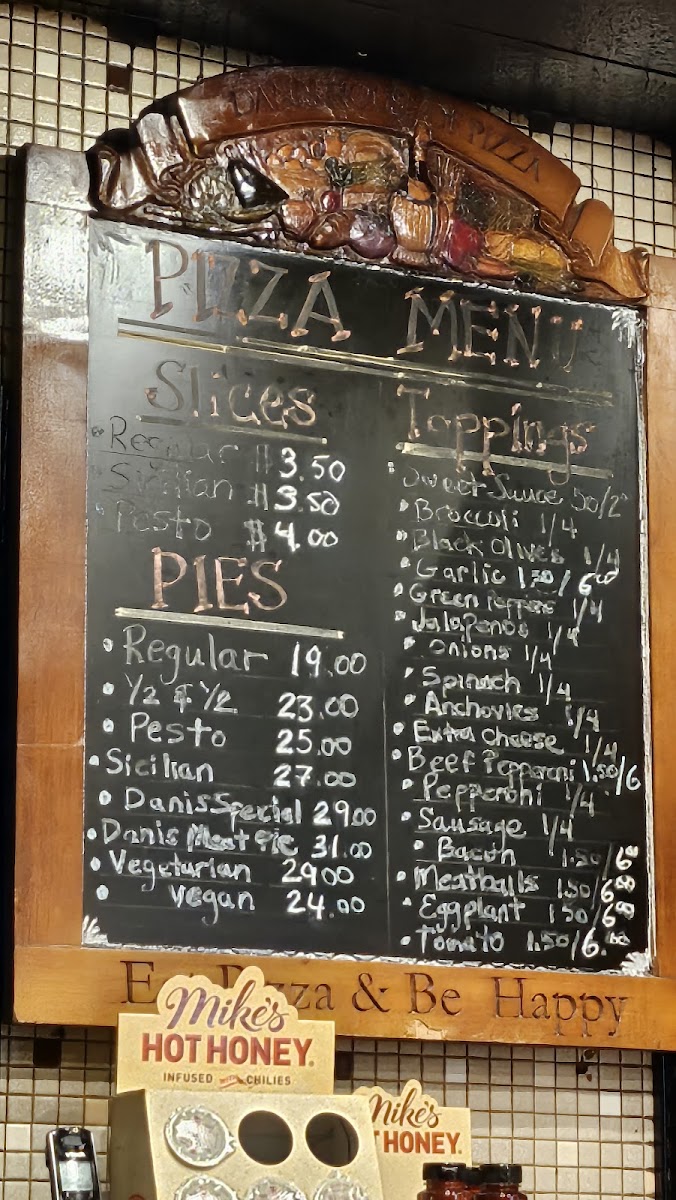 PIZZA
PIZZA MENU
Slices
Regular $3.50
Sicilian $3.50
Pesto $4.00
PIES
• Regular 19.00
• 1/2 & 1/2 23.00
• Pesto 25.00
• Sicilian 27.00
• Danis Special 29.00
• Danis Meat Pie 31.00
• Vegeturian 29.00
• vegan 24.00
Toppings
• Sweet Sauce 50/2
• Broccoli 1/4
• Black Olives 1/4
• Garlic 1.50/6.00
• Green Peppers 1/4
• Jalapenos 1/4
• Onions 1/4
• Spinach 1/4
• Anchovies 1/4
• Extra Cheese 1/4
• Beef Pepperoni 1.50/6
• Pepperoni 1/4
• Sausage 1/4
• Bacon 1.50/6.00
• Meatballs 1.50/6.00
• Eggplant 1.50/6.00
• Tomato 1.50/6.00
Eat Pizza & Be Happy
Mike's
HOT HONEY®
INFUSED WITH CHILIES
Mike's
HONEY